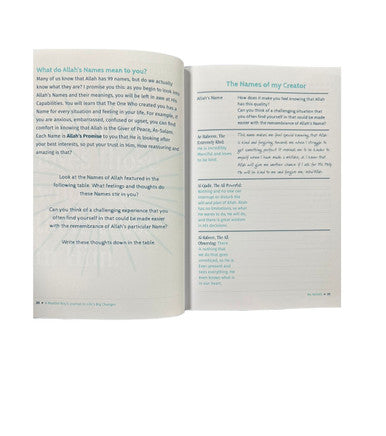 What do Allah's Names mean to you?
Many of us know that Allah has 99 names, but do we actually
know what they are? I promise you this: as you begin to look into
Allah's Names and their meanings, you will be left in awe at His
Capabilities. You will learn that The One Who created you has a
Name for every situation and feeling in your life. For example, if
you are anxious, embarrassed, confused or upset, you can find
comfort in knowing that Allah is the Giver of Peace, As-Salam.
Each Name is Allah's Promise to you that He is looking after
your best interests, so put your trust in Him. How reassuring and
amazing is that?
Look at the Names of Allah featured in the
following table. What feelings and thoughts do
these Names stir in you?
Can you think of a challenging experience that you
often find yourself in that could be made easier
with the remembrance of Allah's particular Name?
Write these thoughts down in the table.
A Muslim Boy's Journal to Life's Big Changes
The Names of my Creator
Allah's Name
How does it make you feel knowing that Allah
has this quality?
Can you think of a challenging situation that
you often find yourself in that could be made
easier with the remembrance of Allah's Name?
Ar-Raheem, The
Extremely Kind:
He is incredibly
Merciful and loves
to be kind.
This name makes me feel special knowing that Allah
is kind and forgiving towards me when I struggle to
get something perfect. It reminds me to be kinder to
myself when I make a mistake,
Allah will give me another chance if I ask for His Help.
He will be kind to me and forgive me,
Al-Qadir, The All Powerful:
Nothing and no one can
interrupt or disturb the
will and plan of Allah. Allah
has no limitations, so what
He wants to do, He will do,
and there is great wisdom
in His decisions.
The All
Observing: There
is nothing that
we do that goes
unnoticed, so He is
Ever-present and
sees everything. He
even knows what is
in our heart.